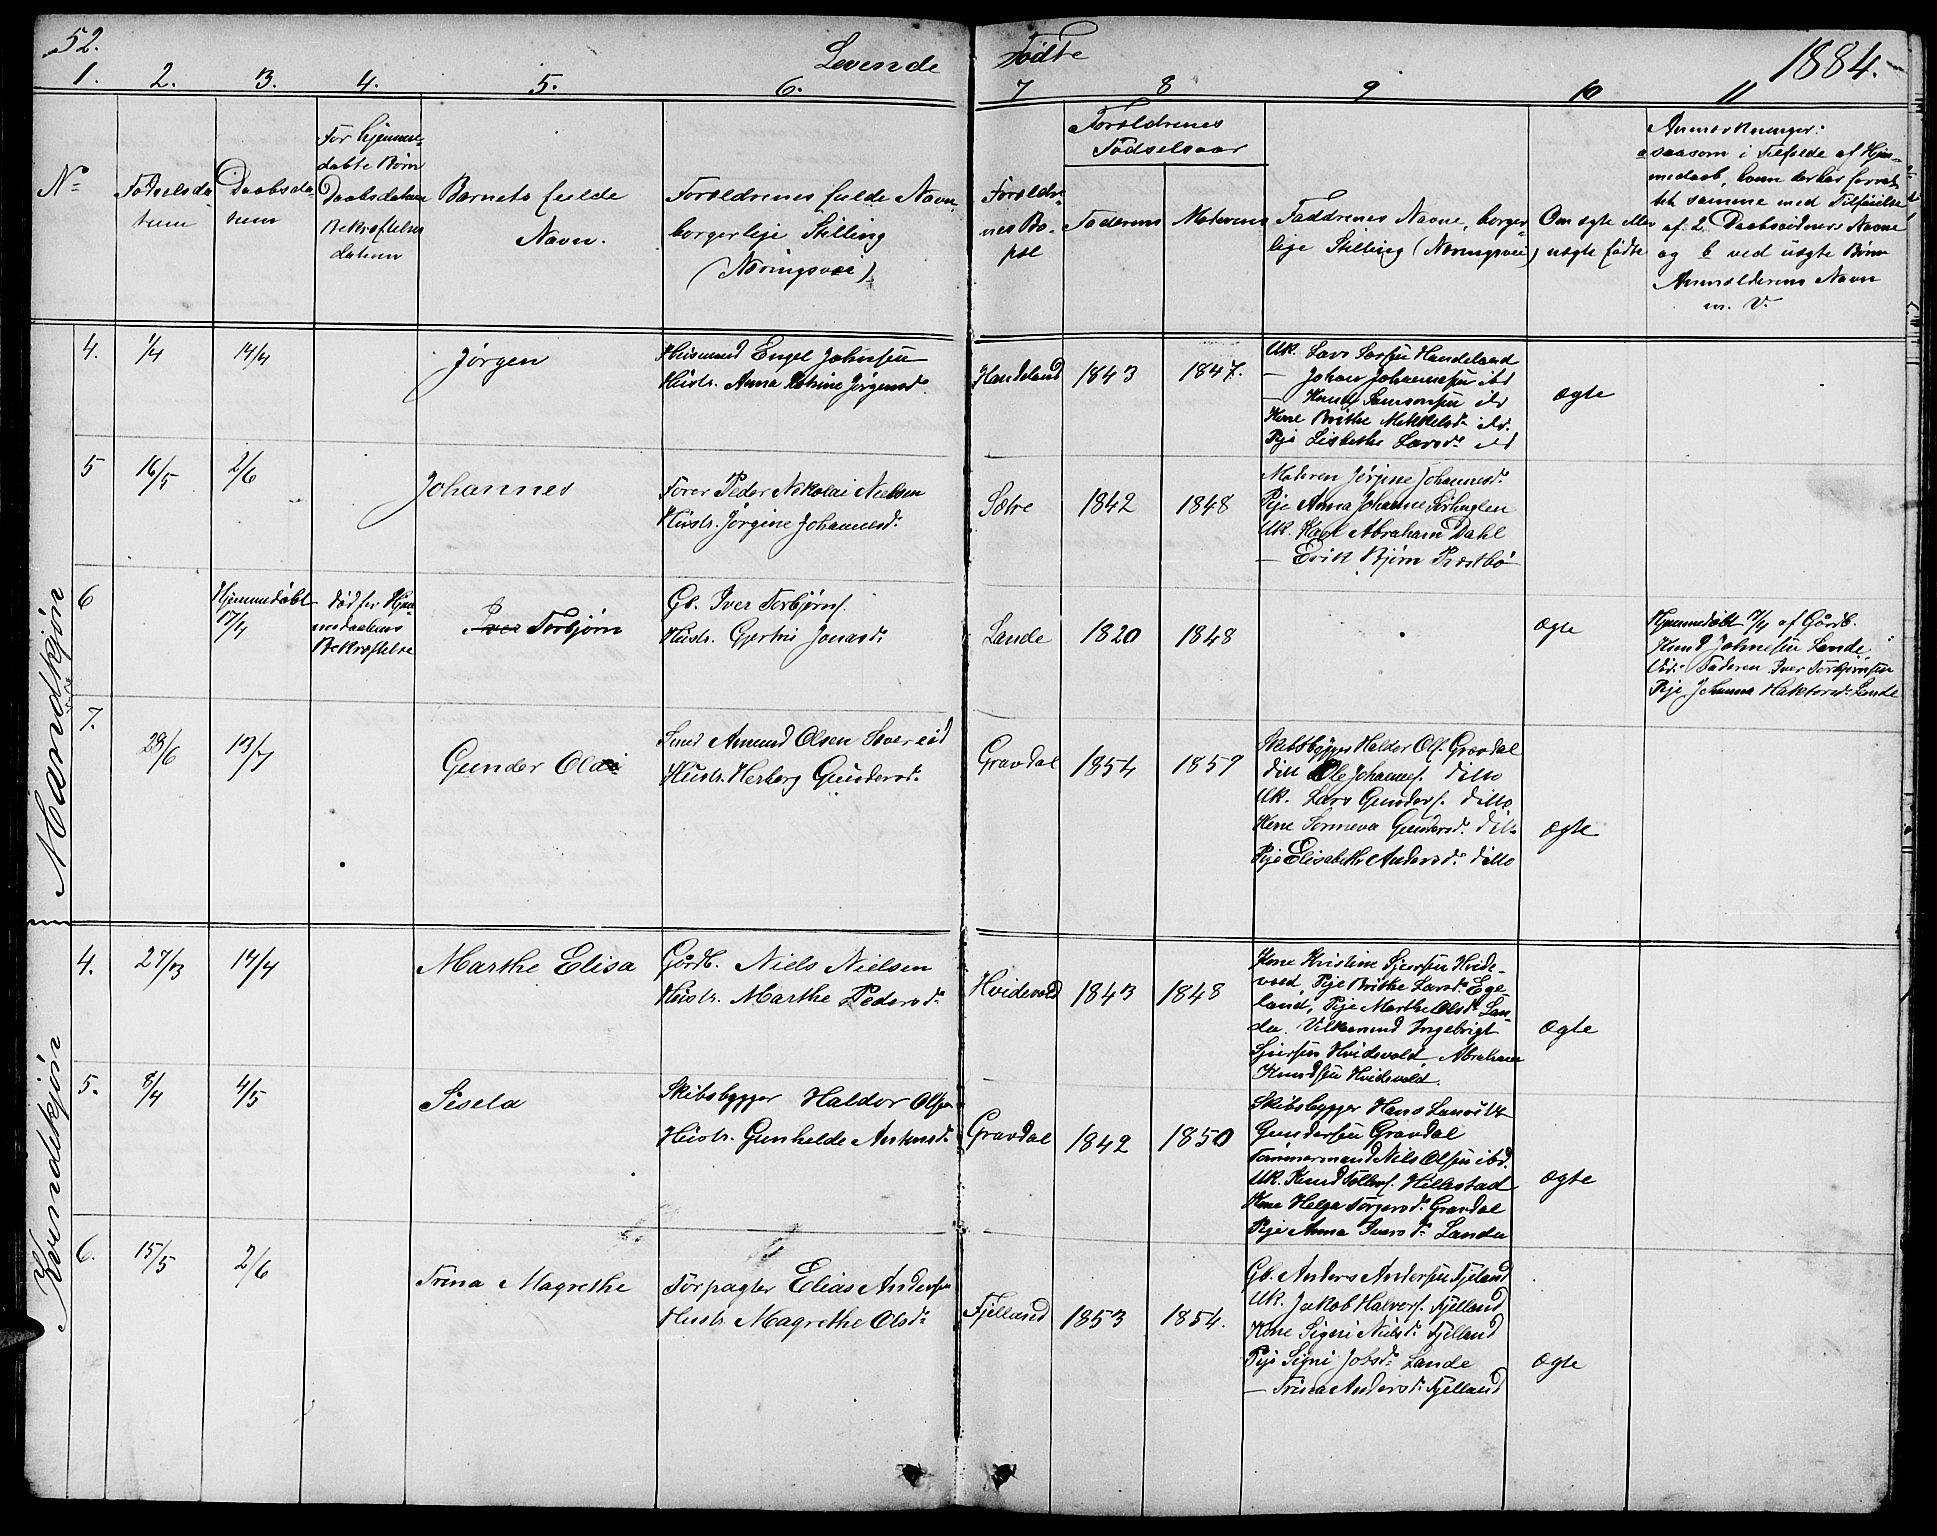 52.
Levende Fødte
1884.
1. 2. 3. 4. 5. 6. 7 8 9 10 11
No
Fødselsda-
tum
Daabsda-
tum
For hjemme-
døbte Børn
Daabsdatum
Bekræftelses
datum
Barnets fulde
Navn.
Forældrenes fulde Navn,
borgerlige Stilling
(Næringsvei)
Forældre-
nes Bo-
pæl
Forældrenes
Fødselsaar
Faderens
Moderens
Faddrenes Navne, borger-
lige Stilling (Næringsvei)
Om ægte eller
uægte fødte
Anmærkninger:
a saasom i Tilfælde af Hjem-
medaab, hvem der har forret-
tet samme med Tilføielse
af 2 Daabsvidners Navne
og b ved uægte Børn
Anmelderens Navn
m. V.
Mandkjøn
4. 1/4 14/4
Jørgen
Husmand Engel Johnsen
Hustr. Anna Jørgensd.
Handeland 1843 1847.
Uk. Lars Larsen Handeland
— Johan Johannesen ibd
— Knud Samsonsen ibd
Kone Brithe Mikkelsd. ibd.
Pige Lisbethe Larsd. ibd
ægte
5 16/5 2/6
Johannes
Fører Peder Nikolai Nielsen
Hustr. Jørgine Johannesd.
Sætre 1842 1848
Moderen Jørgine Johannesd.
Pige Anna Johanne
Uk. Karl Abraham Dahl
— Erik Bjørn
6
Hjemmedøbt
17/4
død før Hjem-
medaabens
Bekræftelse
Iver Torbjørn
Gb. Iver Torbjørns.
Hustr. Gjertrui Jonasd.
Lande 1820 1848
ægte
Hjemmedøbt 17/4 af Gårdb.
Knud Johnesen Lande
Vid: Faderen Iver Torbjørnsen
Pige Johanna Lande
7. 28/6 13/7
Gunder Olai
Smed Amund Olsen Svereid
Hustr. Herborg Gundersd.
Gravdal 1854 1859
Skibsbygger Haldor Ols. Gravdal
ditt Ole Johannes. ditto
Uk. Lars Gunders. ditto
Kone Sønneva Gundersd. ditto
Pige Elisabeth Andersd. ditto
ægte
Kvindekjøn
4. 27/3 14/4
Marthe Elisa
Gårdb. Niels Nielsen
Hustr. Marthe Pedersd.
Hvidevold 1843 1848
Kone Kristine Sjursen Hvide-
vold, Pige Brithe Larsd. Ege-
land, Pige Marthe Olsd. Lan-
de. Ingebrigt
Sjursen Hvidevold Abraham
Knudsen Hvidevold.
ægte
5. 8/4 4/5
Sisela
Skibsbygger Haldor Olsen
Hustr. Gunhelde Antonsd.
Gravdal 1842 1850
Skibsbygger Hans Lauritz
Gundersen Gravdal
Tømmermand Nils Olsen ibd.
Uk. Knud Tollevs. Hillestad
Kone Helga Torgersd. Gravdal
Pige Anna Iversd. Lande
ægte
6. 15/5 2/6
Trina Magrethe
Forpagter Elias Andersen
Hustr. Magrethe Olsd.
Fjelland 1853 1854.
Gb. Anders Andersen Fjeland
Uk. Jakob Halvors. Fjelland
Kone Signi Nielsd. Fjelland
Pige Signi Jobsd. Lande
— Trina Andersd. Fjelland
ægte